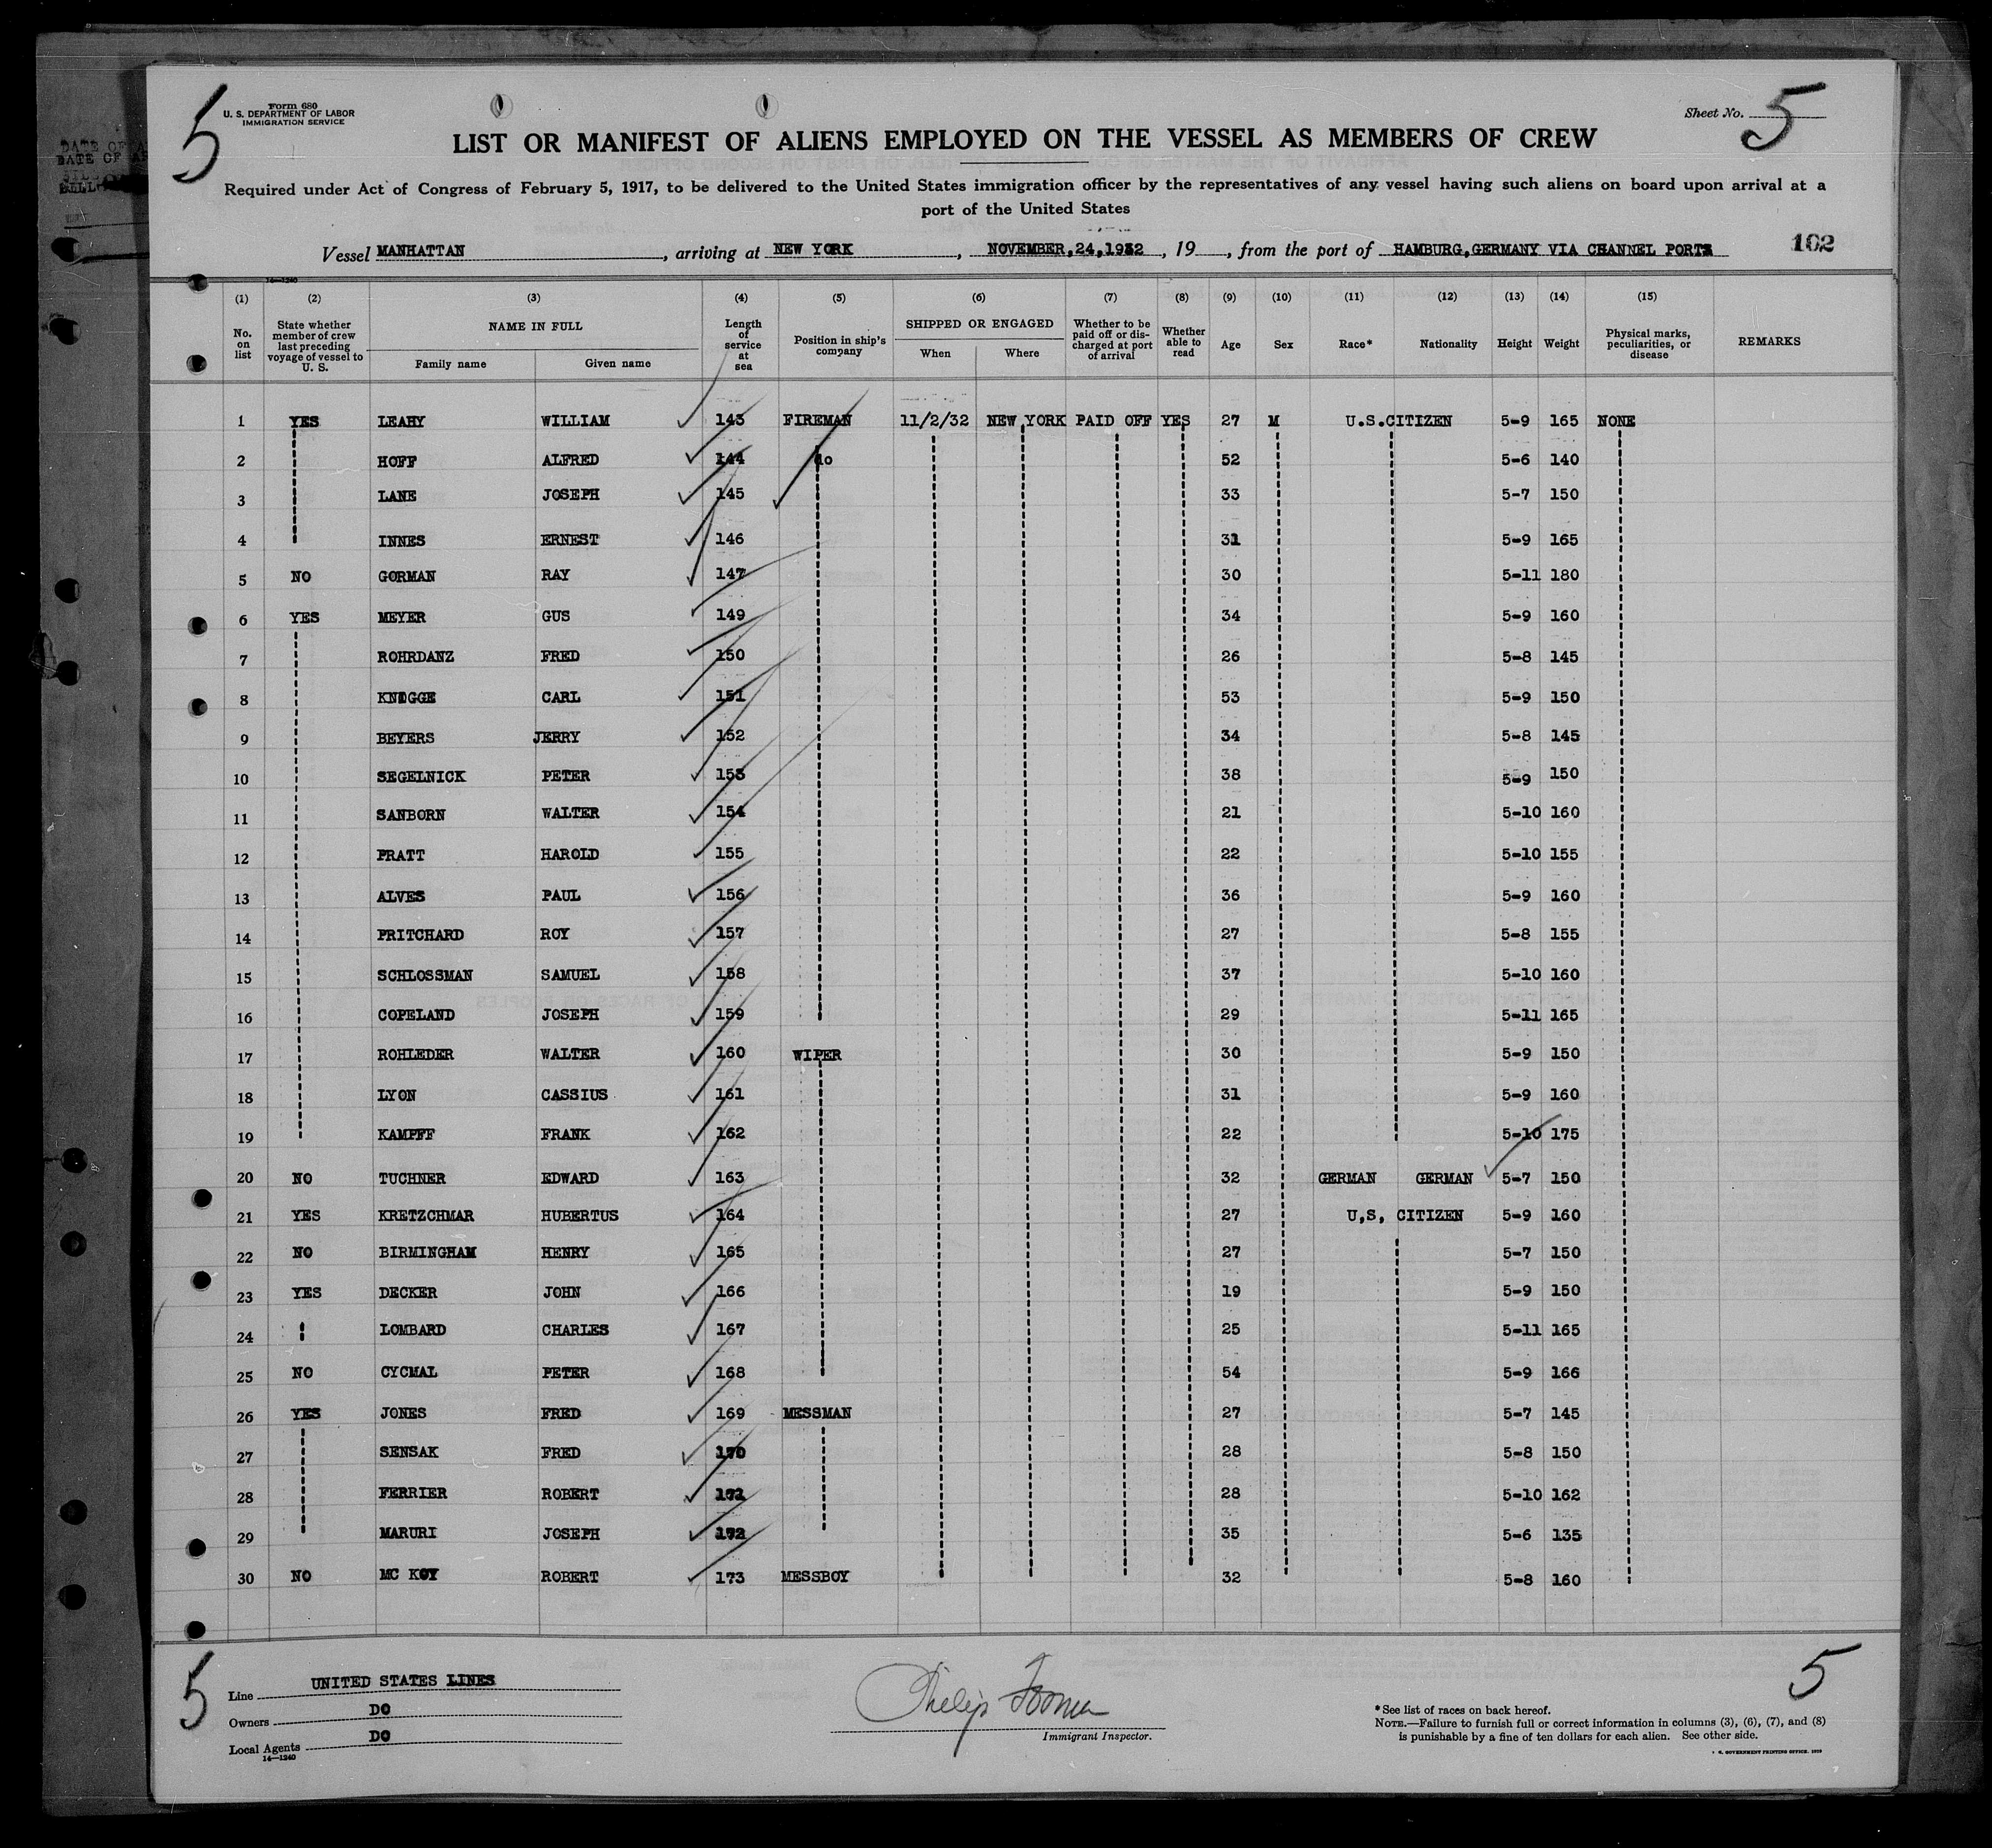 5
Form 680
U. S. DEPARTMENT OF LABOR
IMMIGRATION SERVICE
Sheet No. 5
LIST OR MANIFEST OF ALIENS EMPLOYED ON THE VESSEL AS MEMBERS OF CREW
Required under Act of Congress of February 5, 1917, to be delivered to the United States immigration officer by the representatives of any vessel having such aliens on board upon arrival at a
port of the United States
Vessel MANHATTAN, arriving at NEW YORK, NOVEMBER,24,1932, 19, from the port of HAMBURG,GERMANY VIA CHANNEL PORTS 102
14—1240
(1) (2) (3) (4) (5) (6) (7) (8) (9) (10) (11) (12) (13) (14) (15)
No. on list State whether member of crew last preceding voyage of vessel to U. S. NAME IN FULL Family name Given name Length of service at sea Position in ship's company SHIPPED OR ENGAGED When Where Whether to be paid off or discharged at port of arrival Whether able to read Age Sex Race* Nationality Height Weight Physical marks, peculiarities, or disease REMARKS
1 YES LEAHY WILLIAM 143 FIREMAN 11/2/32 NEW YORK PAID OFF YES 27 M U.S.CITIZEN 5-9 165 NONE
2 HOFF ALFRED 144 do 52 5-6 140
3 LANE JOSEPH 145 33 5-7 150
4 INNES ERNEST 146 31 5-9 165
5 NO GORMAN RAY 147 30 5-11 180
6 YES MEYER GUS 149 34 5-9 160
7 ROHRDANZ FRED 150 26 5-8 145
8 KNIGGE CARL 151 53 5-9 150
9 BEYERS JERRY 152 34 5-8 145
10 SEGELNICK PETER 153 38 5-9 150
11 SANBORN WALTER 154 21 5-10 160
12 PRATT HAROLD 155 22 5-10 155
13 ALVES PAUL 156 36 5-9 160
14 PRITCHARD ROY 157 27 5-8 155
15 SCHLOSSMAN SAMUEL 158 37 5-10 160
16 COPELAND JOSEPH 159 29 5-11 165
17 ROHLEDER WALTER 160 WIPER 30 5-9 150
18 LYON CASSIUS 161 31 5-9 160
19 KAMPFF FRANK 162 22 5-10 175
20 NO TUCHNER EDWARD 163 32 GERMAN GERMAN 5-7 150
21 YES KRETZCHMAR HUBERTUS 164 27 U,S, CITIZEN 5-9 160
22 NO BIRMINGHAM HENRY 165 27 5-7 150
23 YES DECKER JOHN 166 19 5-9 150
24 LOMBARD CHARLES 167 25 5-11 165
25 NO CYCMAL PETER 168 54 5-9 166
26 YES JONES FRED 169 MESSMAN 27 5-7 145
27 SENSAK FRED 170 28 5-8 150
28 FERRIER ROBERT 171 28 5-10 162
29 MARURI JOSEPH 172 35 5-6 135
30 NO MC KOY ROBERT 173 MESSBOY 32 5-8 160
5
Line UNITED STATES LINES
Owners DO
Local Agents DO
14—1240
Philip
Immigrant Inspector.
5
*See list of races on back hereof.
NOTE.—Failure to furnish full or correct information in columns (3), (6), (7), and (8)
is punishable by a fine of ten dollars for each alien. See other side.